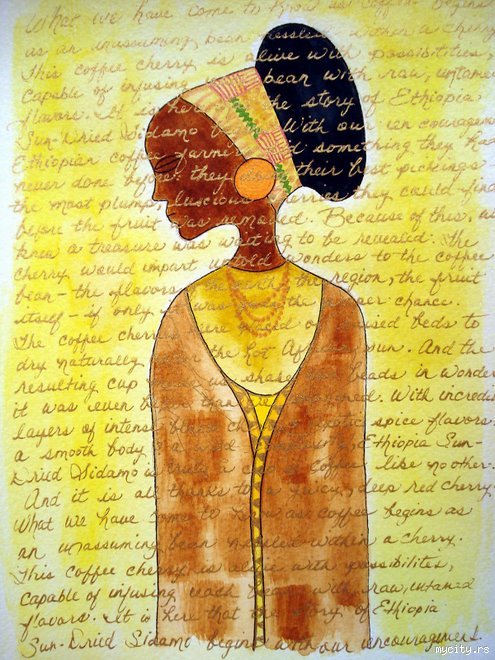 What we have come to know as coffee begins
as an unassuming bean nestled within a cherry.
This coffee cherry is alive with possibilities
capable of infusing bean with raw, untamed
flavors. It is here the story of Ethiopia
Sun-Dried Sidamo With our encouragement
Ethiopian coffee farmers did something they had
never done before: they their best pickings
the most plump, luscious cherries they could find
before the fruit was removed. Because of this, we
knew a treasure was waiting to be revealed. The
cherry would impart untold wonders to the coffee
bean - the flavors the region, the fruit
itself - if only it was the proper chance.
The coffee cherries were placed on raised beds to
dry naturally the hot African sun. And the
resulting cup made us shake heads in wonder
it was even With incredible
layers of intense exotic spice flavors
a smooth body Ethiopia Sun-
Dried Sidamo is truly a coffee like no other.
And it is all thanks to a juicy, deep red cherry.
What we have come to know as coffee begins as
an unassuming bean nestled within a cherry.
This coffee cherry is alive with possibilites,
capable of infusing each bean with raw, untamed
flavors. It is here that the story of Ethiopia
Sun-Dried Sidamo begins with our encouragement
mycity.rs